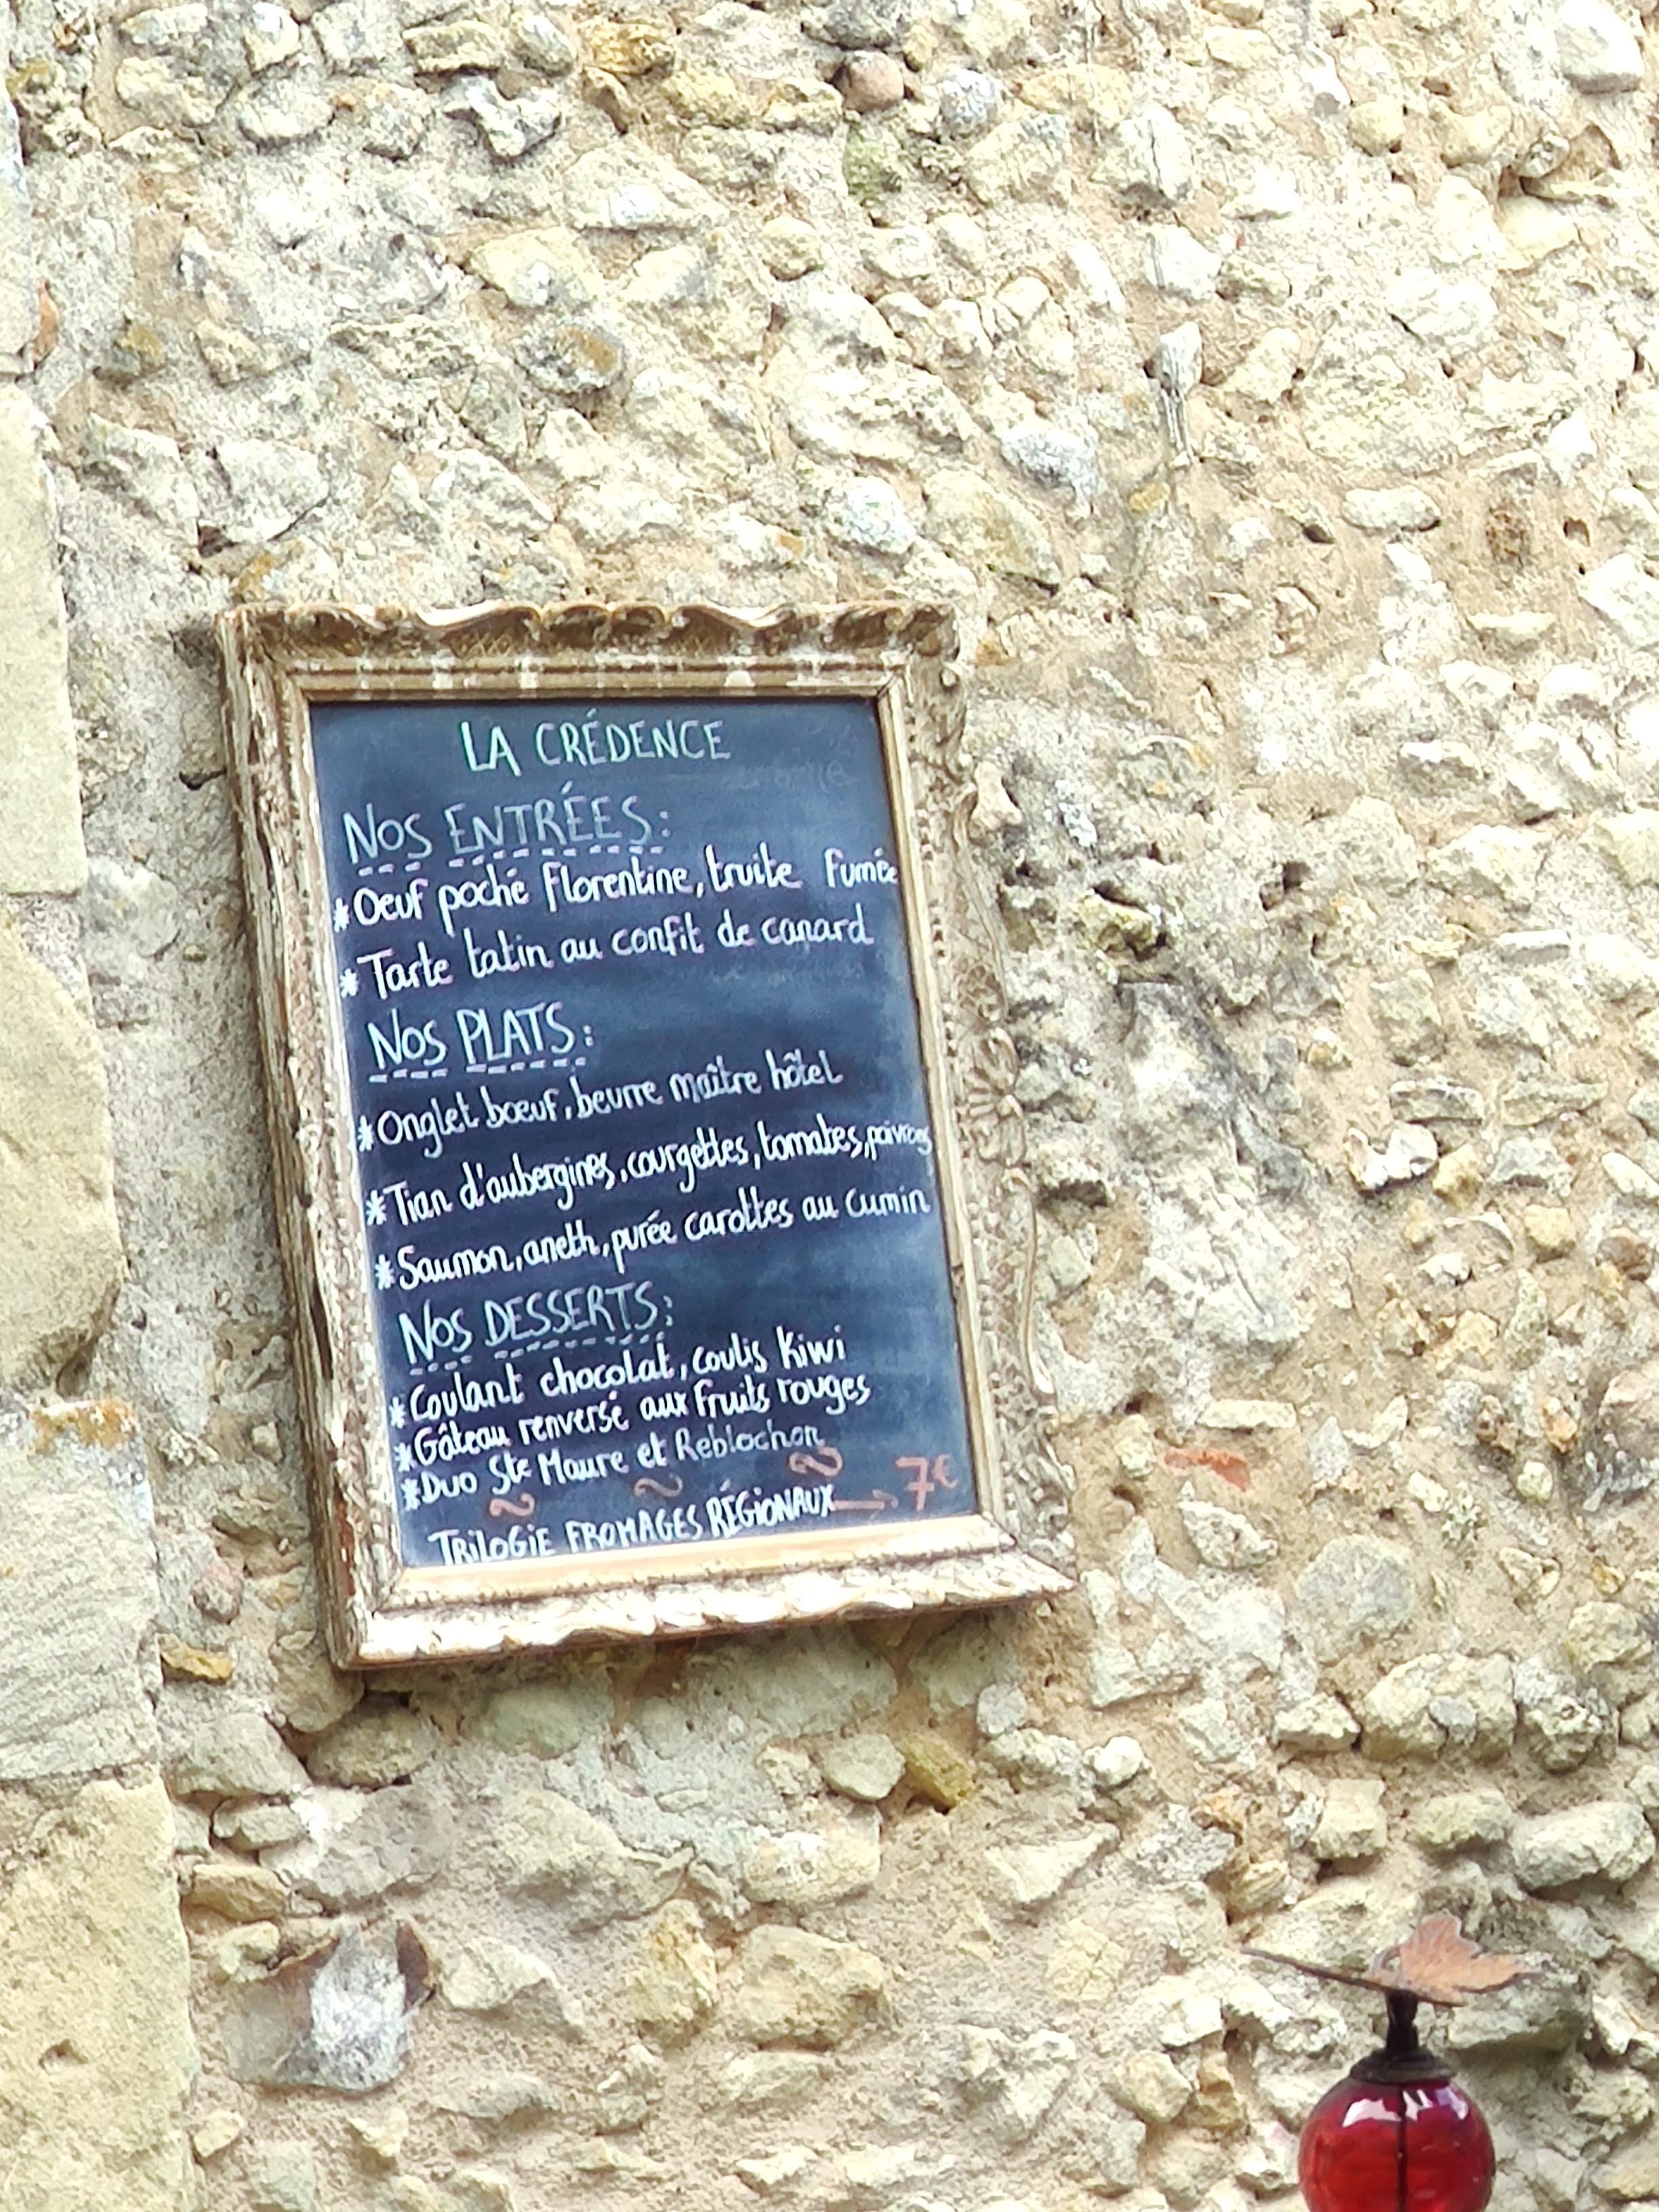 LA CRÉDENCE
NOS ENTRÉES:
*Oeuf poché Florentine, truite fumée
*Tarte tatin au confit de canard
NOS PLATS:
*Onglet bœuf, beurre maître hôtel
*Tian d'aubergines, courgettes, tomates, poivrons
*Saumon, aneth, purée carottes au cumin
NOS DESSERTS:
*Coulant chocolat, coulis kiwi
*Gâteau renversé aux fruits rouges
*Duo Ste Maure et Reblochon
TRILOGIE FROMAGES RÉGIONAUX → 7€